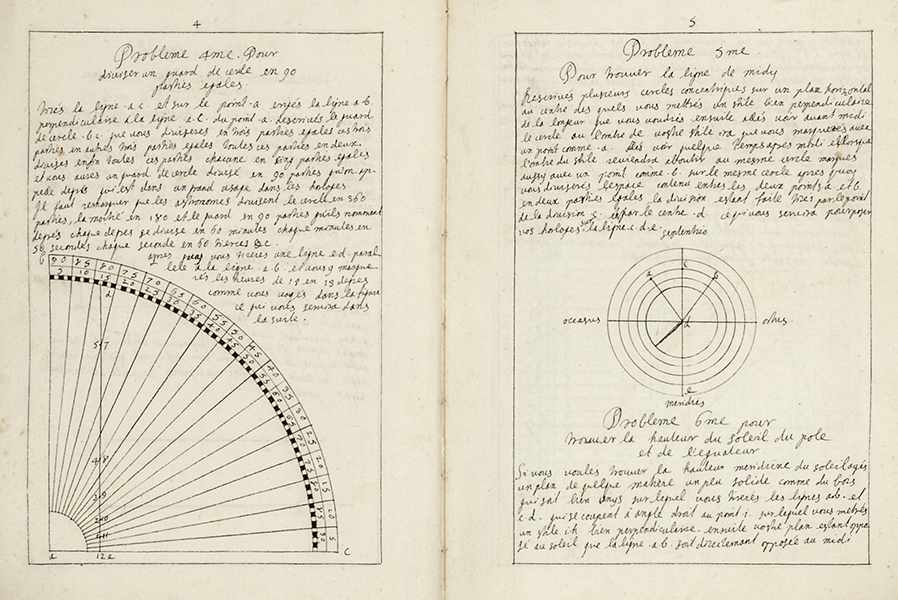 4
Probleme 4me. Pour
diviser un quard de cercle en 90
parties egales.
tirés la ligne a c et sur le point a erigés la ligne a b
perpendiculaire a la ligne a c. du point a descrivés le quard
de cercle b c que vous diviserés en trois parties egales ces trois
parties en autres trois parties egales toutes ces parties en deux
divisés enfin toutes ces parties chacune en cinq parties egales
et vous aurés un quard de cercle divisé en 90 parties qu'on ap-
pele degrés qui est dans un grand usage dans les horloges
Il faut remarquer que les astronomes divisent le cercle en 360
parties, la moitié en 180 et le quard en 90 parties qu'ils nomment
degrés chaque degres se divise en 60 minutes chaque minutes en
secondes chaque seconde en 60 tierces &c.
apres quoy vous tirerés une ligne e d paral
lele a la ligne a b et vous y marque
rés les heures de 15 en 15 degres
comme vous voyés dans la figure
ce qui vous servira dans
la suite.
b
90 85 80 75 70 65 60 55 50 45 40 35 30 25 20 15 10 5
5 10 15 20 25
d
5 7
4 8
3 9
2 10
1 11
a 12 e c
5
Probleme 5me
Pour trouver la ligne de midy
Descrivés plusieurs cercles concentriques sur un plan horizontal
au centre des quels vous mettrés un stile bien perpendiculaire
de la longeur que vous voudrés ensuite allés voir avant midi
le cercle ou l'ombre de vostre stile ira que vous marquerés avec
un point comme a allés voir quelque temps apres midi et lorsque
l'ombre du stile reviendra aboutir au mesme cercle marqués
aussy avec un point comme b sur le mesme cercle apres quoy
vous diviserés l'espace contenu entre les deux points a et b
en deux parties egales la division estant faite tirés par le point
de la division c et par le centre d ce qui vous servira pour poser
vos horloges sur la ligne c d e
septentrio
a c b
occasus d ortus
e
meridies
Probleme 6me pour
trouver la hauteur du soleil du pole
et de l'equateur
Si vous voulés trouver la hauteur meridiene du soleil ayés
un plan de quelque matiere un peu solide comme du bois
qui soit bien uny sur lequel vous tirerés les lignes a b et
c d qui se coupent a angle droit au point i sur lequel vous metrés
un stile i h bien perpendiculaire ensuite vostre plan estant oppo
sé au soleil que la ligne a b soit directement opposée au midi